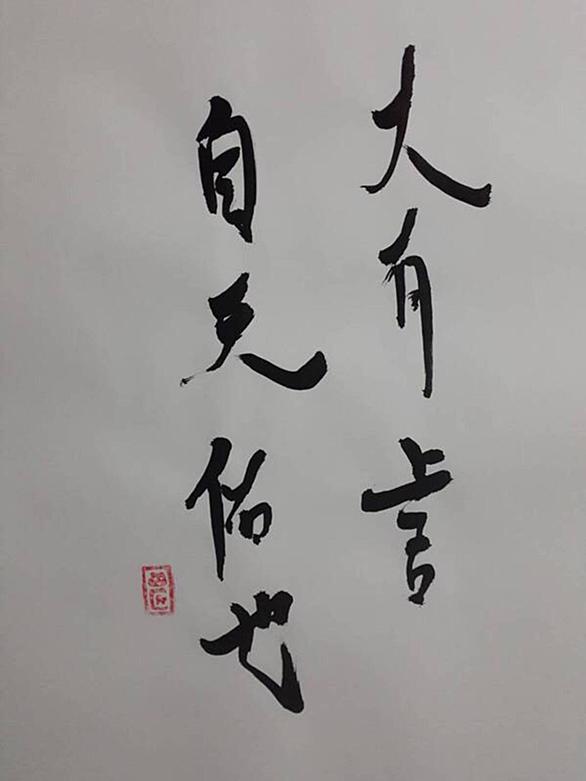 大有上吉
自天佑也